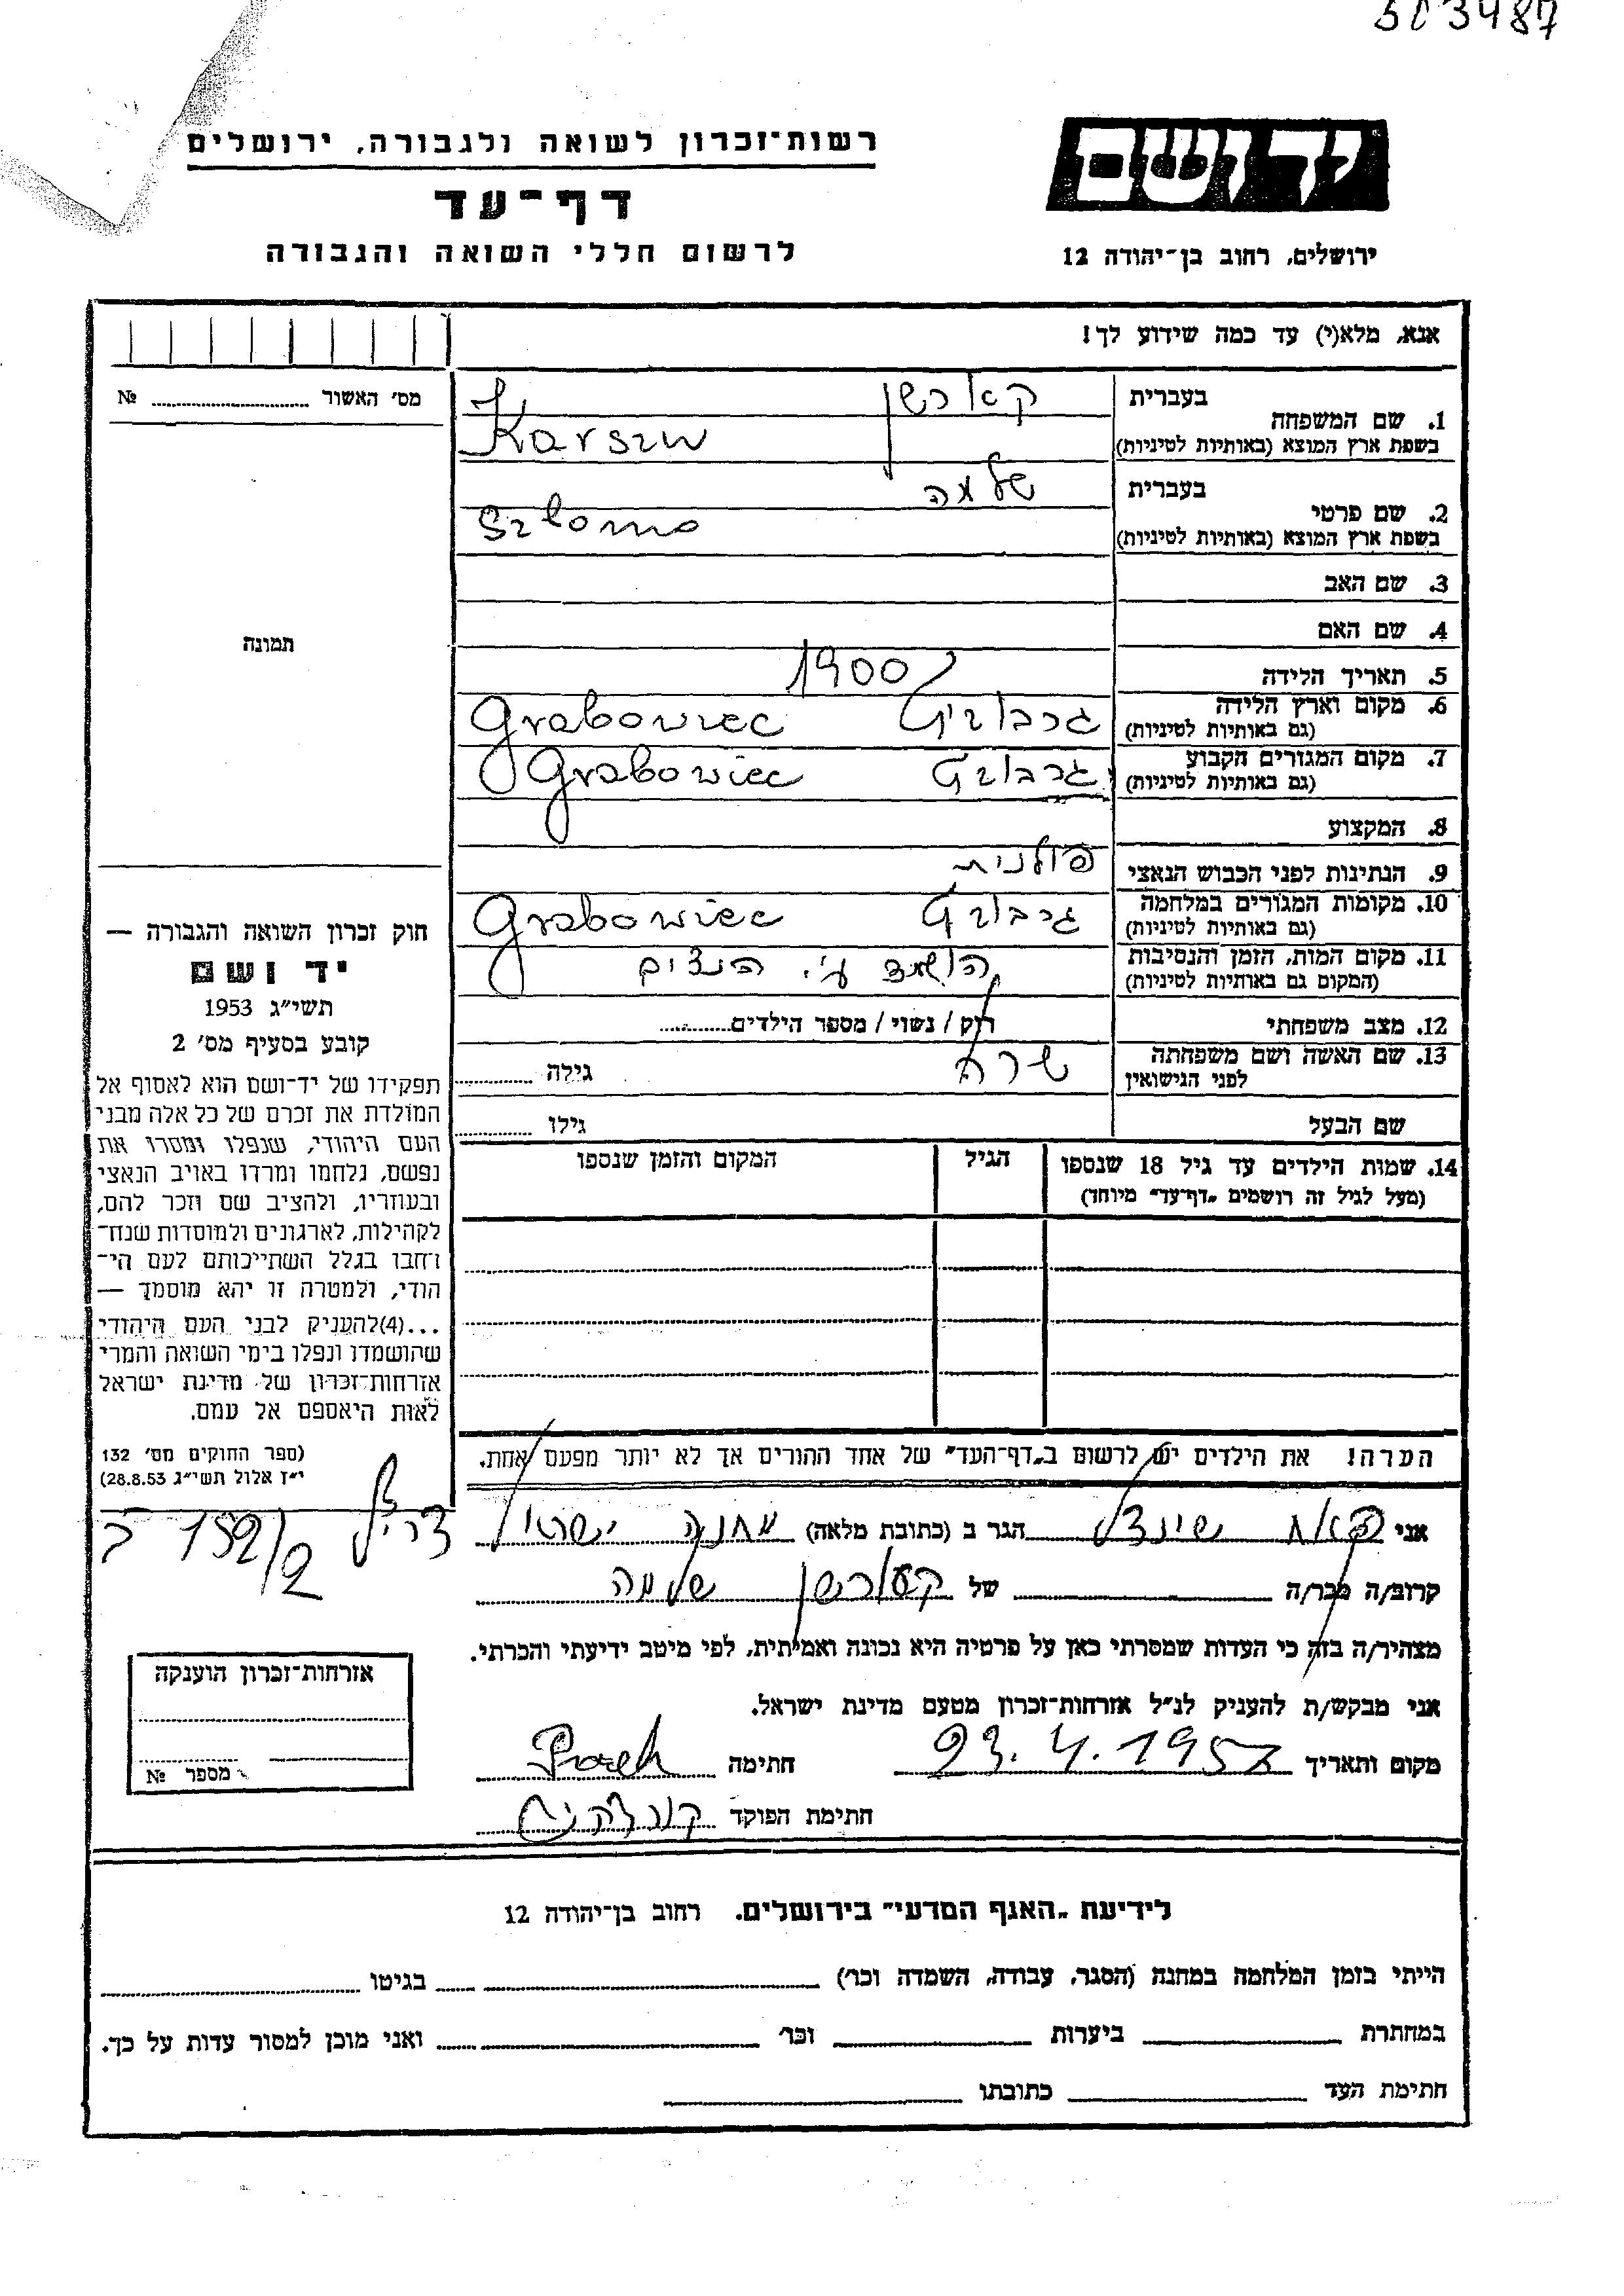 503487
רשות־זכרון לשואה ולגבורה, ירושלים
דף־עד
לרשום חללי השואה והגבורה
יד ושם
ירושלים, רחוב בן־יהודה 12
אנא, מלא(י) עד כמה שידוע לך!
מס׳ האשור № 
1. שם המשפחה
בעברית קארשן
בשפת ארץ המוצא (באותיות לטיניות) Karszn
2. שם פרטי
בעברית שלמה
בשפת ארץ המוצא (באותיות לטיניות) Szlomo
3. שם האב
4. שם האם
5. תאריך הלידה 1900
6. מקום וארץ הלידה
(גם באותיות לטיניות) Grabowiec
7. מקום המגורים הקבוע
(גם באותיות לטיניות) Grabowiec
8. המקצוע
9. הנתינות לפני הכבוש הנאצי פולנית
10. מקומות המגורים במלחמה
(גם באותיות לטיניות) Grabowiec
11. מקום המות, הזמן והנסיבות
(המקום גם באותיות לטיניות) הושמד ע״י הנצים
12. מצב משפחתי רוק / נשוי / מספר הילדים
13. שם האשה ושם משפחתה
לפני הנישואין שרה גילה
שם הבעל גילו
14. שמות הילדים עד גיל 18 שנספו הגיל המקום והזמן שנספו
(מעל לגיל זה רושמים „דף־עד” מיוחד)
תמונה
חוק זכרון השואה והגבורה —
יד ושם
תשי״ג 1953
קובע בסעיף מס׳ 2
תפקידו של יד־ושם הוא לאסוף אל
המולדת את זכרם של כל אלה מבני
העם היהודי, שנפלו ומסרו את
נפשם, נלחמו ומרדו באויב הנאצי
ובעוזריו, ולהציב שם וזכר להם,
לקהילות, לארגונים ולמוסדות שנח־
רבו בגלל השתייכותם לעם הי־
הודי, ולמטרה זו יהא מוסמך —
...(4)להעניק לבני העם היהודי
שהושמדו ונפלו בימי השואה והמרי
אזרחות־זכרון של מדינת ישראל
לאות היאספם אל עמם.
(ספר החוקים מס׳ 132
י״ז אלול תשי״ג 28.8.53)
הערה! את הילדים יש לרשום ב„דף־העד” של אחד ההורים אך לא יותר מפעם אחת.
אני שינדל הגר ב (כתובת מלאה) מחנה ישראל צריף 152/2
קרוב/ה מכר/ה של קארשן שלמה
מצהיר/ה בזה כי העדות שמסרתי כאן על פרטיה היא נכונה ואמיתית, לפי מיטב ידיעתי והכרתי.
אני מבקש/ת להעניק לנ״ל אזרחות־זכרון מטעם מדינת ישראל.
מקום ותאריך 23.4.1957 חתימה
חתימת הפוקד
אזרחות־זכרון הוענקה
מספר №
לידיעת „האגף המדעי” בירושלים. רחוב בן־יהודה 12
הייתי בזמן המלחמה במחנה (הסגר, עבודה, השמדה וכר׳) בגיטו
במחתרת ביערות וכר׳ ואני מוכן למסור עדות על כך.
חתימת העד כתובתו